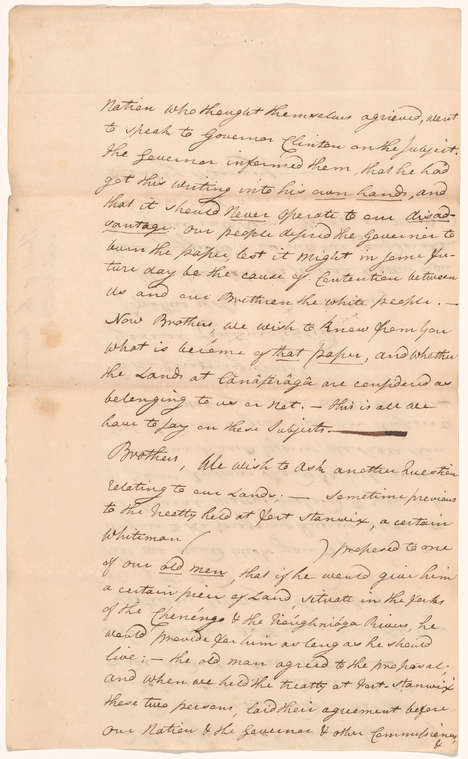 Nation who thought themselves agrieved, went
to speak to Governor Clinton on the subject.
The Governor informed them, that he had
got this writing into his own hands, and
that it should never operate to our disad-
vantage. our people desired the Governor to
burn the paper, lest it might in some fu-
ture day be the cause of Contention between
us and our Brethren the white people. —
Now Brothers, we wish to know from you
what is become of that paper, and whether
the Lands at Canâserâgâ are considered as
belonging to us or not. — this is all we
have to say on these Subjects. —
Brothers, We wish to ask another Question
relating to our Lands. — Sometime previous
to the treaty held at Fort Stanwix, a certain
Whiteman ( ) proposed to one
of our old men, that if he would give him
a certain piece of Land, situate in the forks
of the Chenéngo & the Tióughnióga Rivers, he
would provide for him as long as he should
live; — the old man agreed to the proposal;
and when we held the treaty at Fort-Stanwix
these two persons laid their agreement before
our Nation & the Governor & other Commissioners,
&